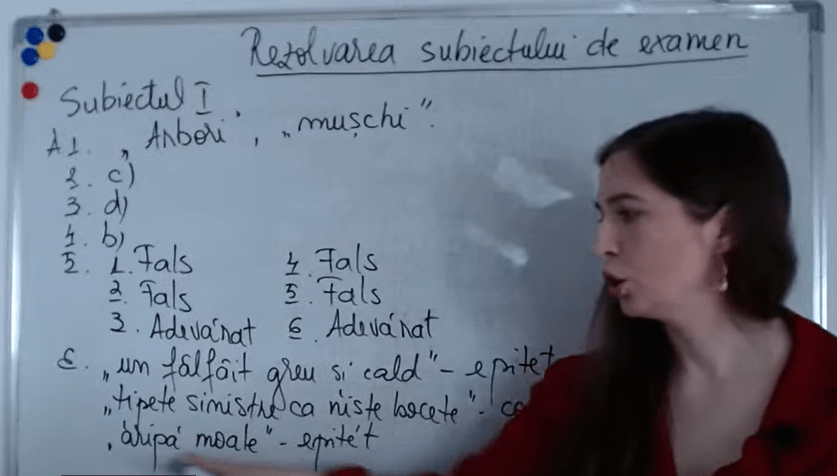 Rezolvarea subiectului de examen
Subiectul I
A 1. „Arbori”, „mușchi”.
2. c)
3. d)
4. b)
5. 1. Fals 4. Fals
2. Fals 5. Fals
3. Adevărat 6. Adevărat
6. „un fâlfâit greu si cald” - epitet
„țipete sinistre ca niște bocete” - co
„aripă moale” - epitet